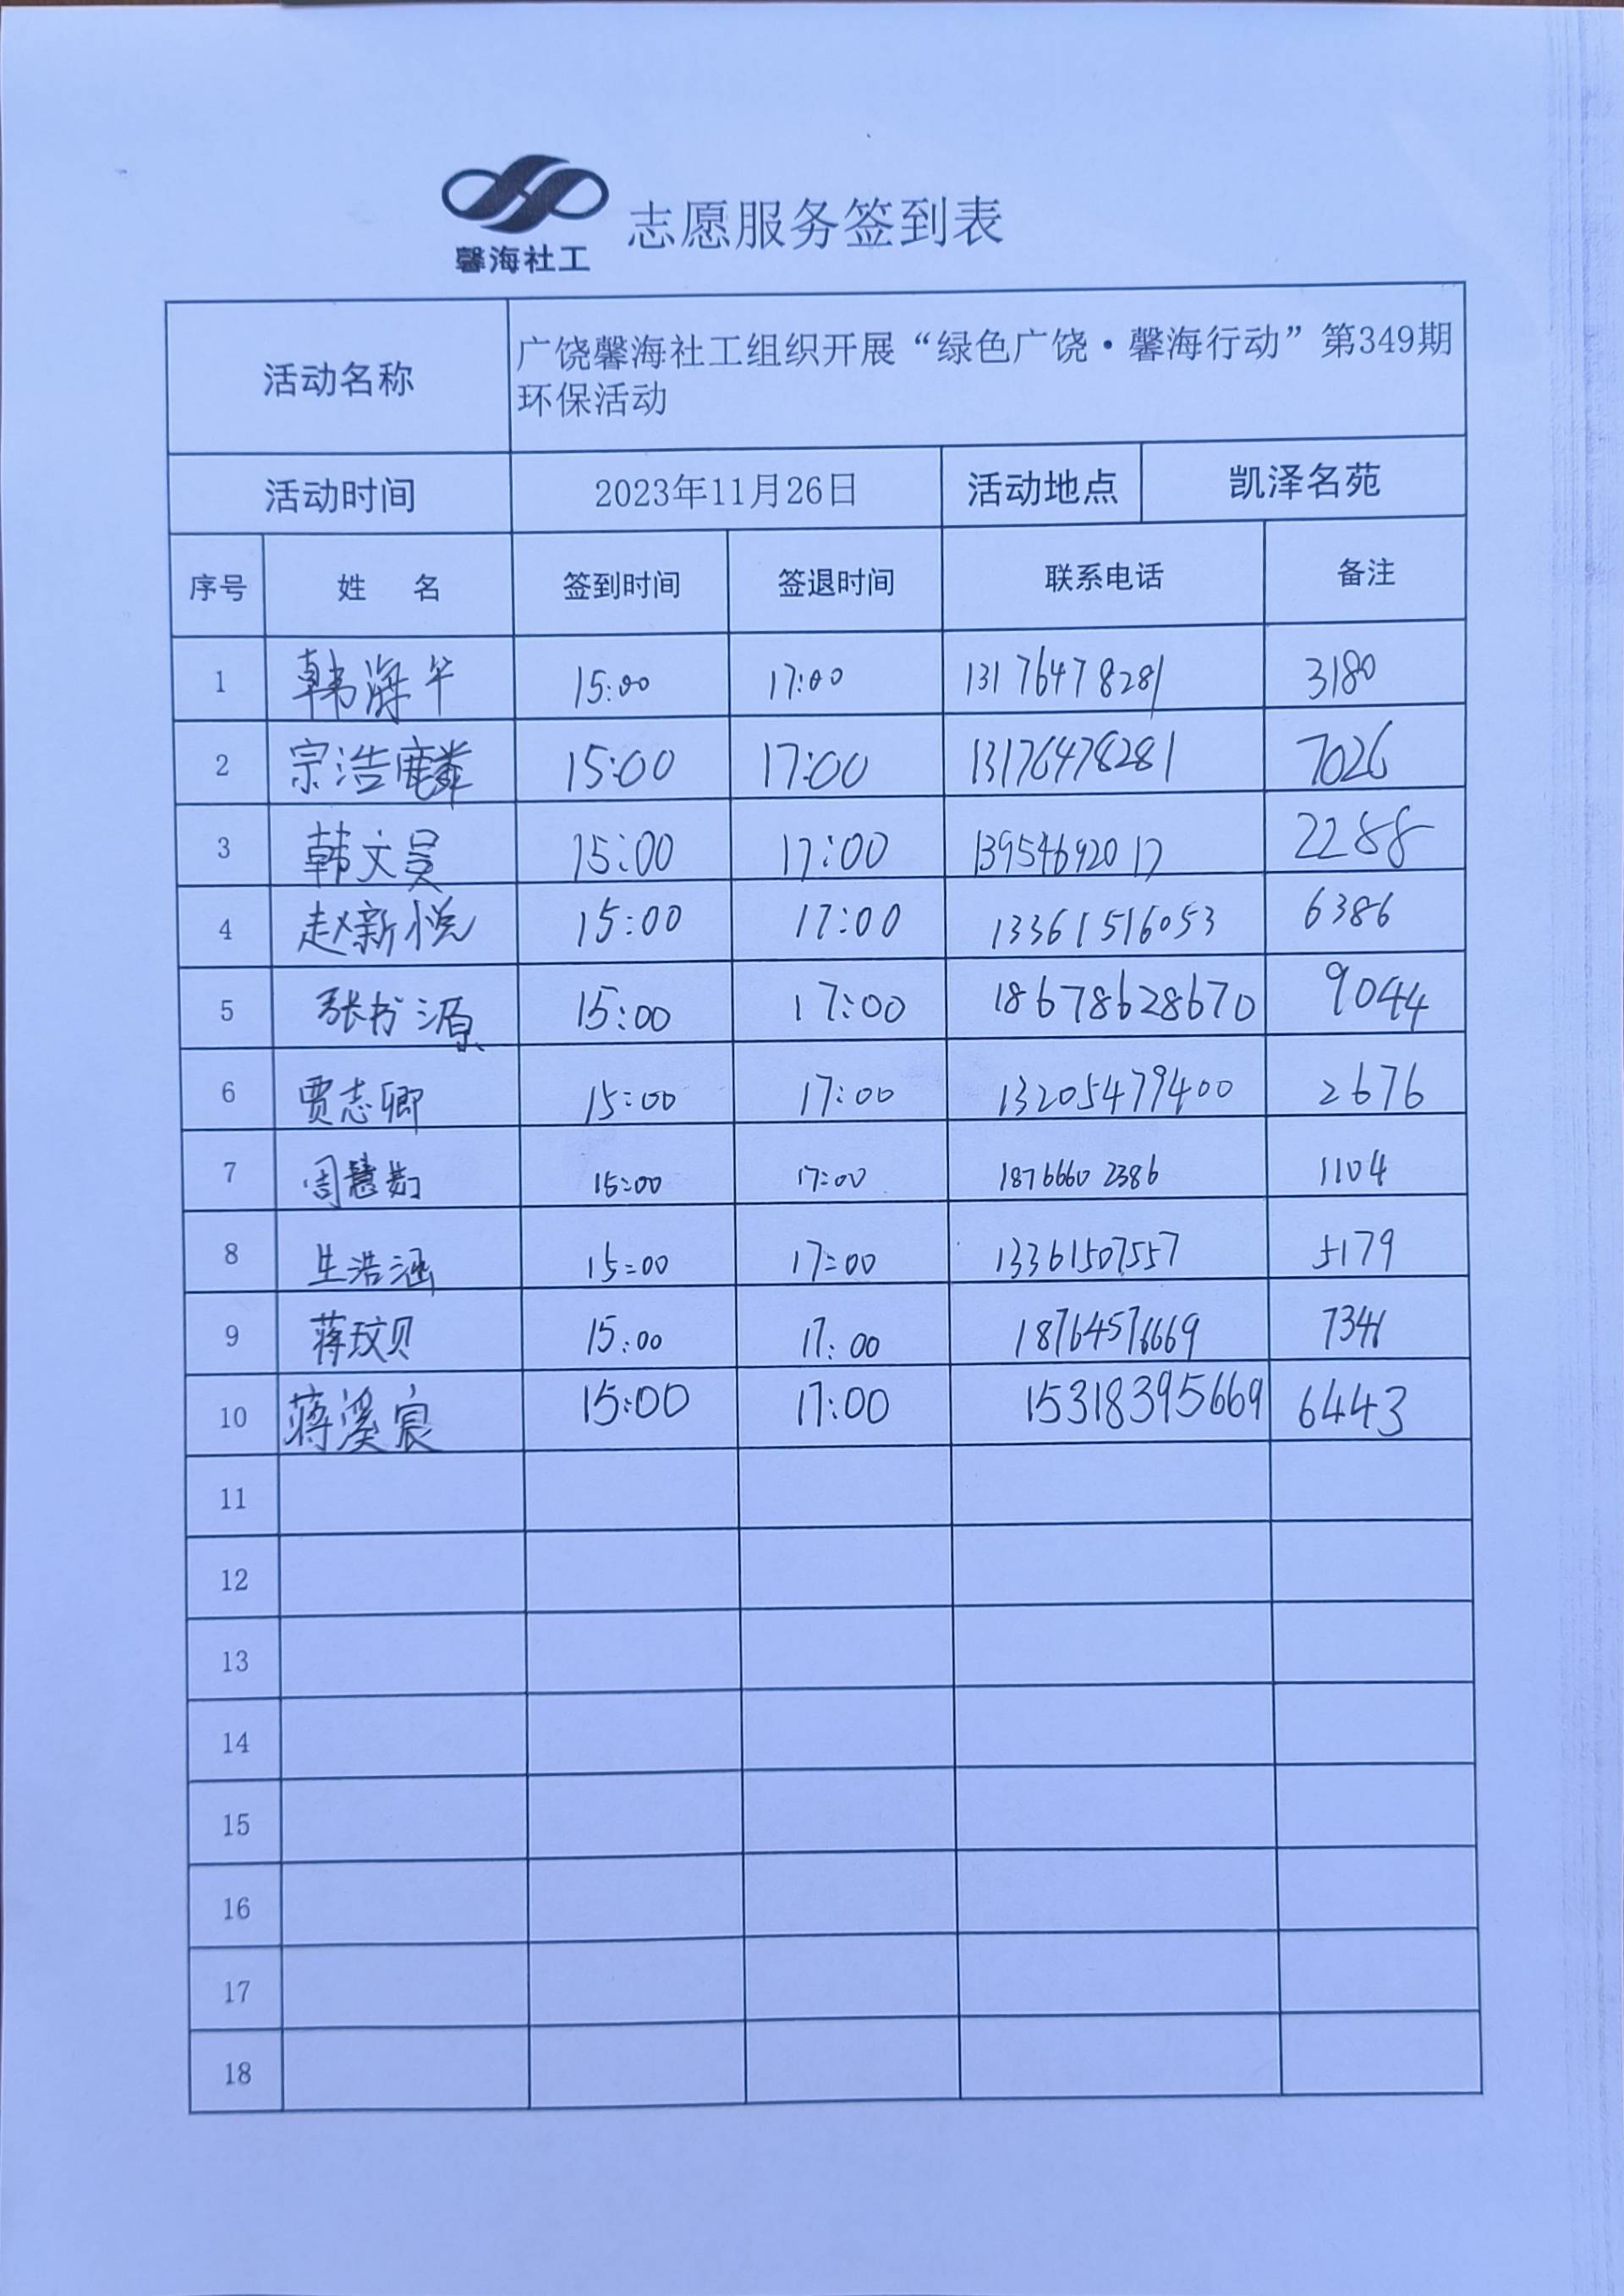 馨海社工
志愿服务签到表
活动名称
广饶馨海社工组织开展“绿色广饶·馨海行动”第349期
环保活动
活动时间 2023年11月26日 活动地点 凯泽名苑
序号 姓 名 签到时间 签退时间 联系电话 备注
1 韩海平 15:00 17:00 13176478281 3180
2 宗浩麟 15:00 17:00 13176478281 7026
3 韩文昊 15:00 17:00 13954692017 2288
4 赵新悦 15:00 17:00 13361516053 6386
5 张书源 15:00 17:00 18678628670 9044
6 贾志卿 15:00 17:00 13205479400 2676
7 周慧茹 15:00 17:00 18766602386 1104
8 生浩涵 15:00 17:00 13361507557 5179
9 蒋玟贝 15:00 17:00 18764576669
10 蒋溪宸 15:00 17:00 15318395669 6443
11
12
13
14
15
16
17
18